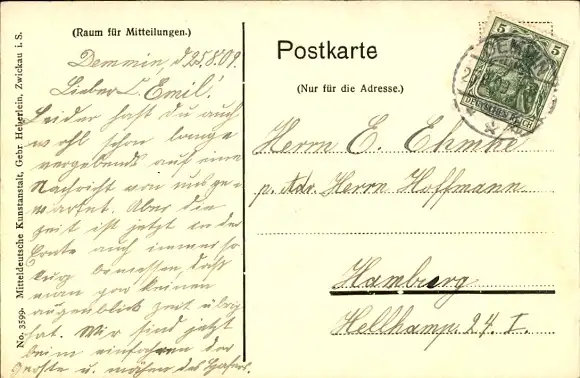 (Raum für Mitteilungen.)
Demmin, d 25.8.09.
Lieber E. Emil!
Leider hast du auch
wohl schon lange
vergebends auf eine
Nachricht von uns ge-
wartet. Aber die
Zeit ist jetzt in der
Ernte auch immer so
kurz bemessen, daß
man gar keinen
augenblick Zeit übrig
hat. Wir sind jetzt
beim einfahren der
Gerste u. mähen des Hafers.
Postkarte
(Nur für die Adresse.)
5 5
DEMMIN
DEUTSCHES REICH
Herrn E. Ehmke
p. Adr. Herrn Hoffmann
Hamburg
Hellkamp 24. I.
No. 3599. Mitteldeutsche Kunstanstalt, Gebr. Heberlein, Zwickau i. S.